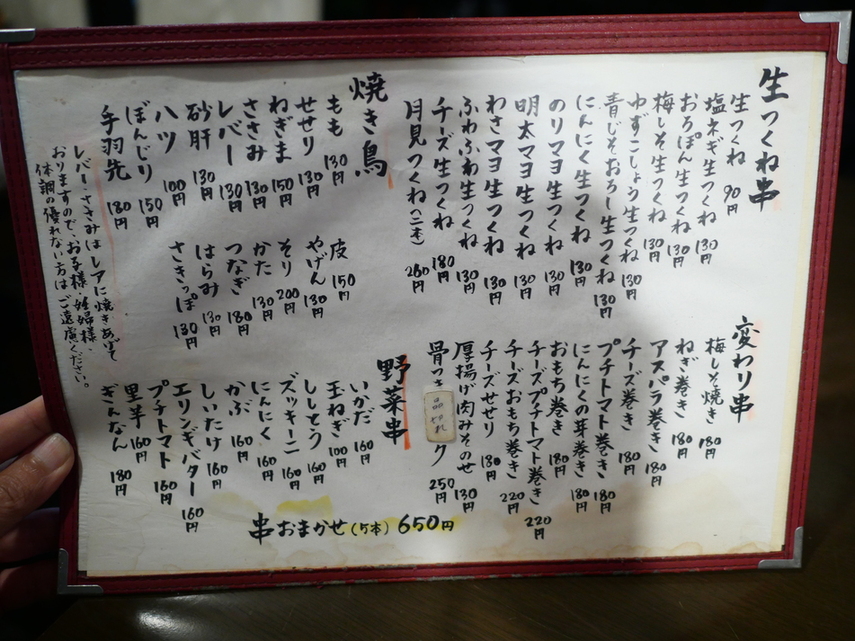 生つくね串
生つくね 90円
塩ネギ生つくね 130円
おろぽん生つくね 130円
梅しそ生つくね 130円
ゆずこしょう生つくね 130円
青じそおろし生つくね 130円
にんにく生つくね 130円
のりマヨ生つくね 130円
明太マヨ生つくね 130円
わさマヨ生つくね 130円
ふわふわ生つくね 130円
チーズ生つくね 180円
月見つくね(二本) 260円
焼き鳥
もも 130円
せせり 130円
ねぎま 150円
ささみ 130円
レバー 130円
砂肝 130円
ハツ 100円
ぼんじり 150円
手羽先 180円
皮 150円
やげん 130円
そり 200円
かた 130円
つなぎ 180円
はらみ 130円
さきっぽ 130円
レバー・ささみはレアに焼きあげて
おりますので、お子様・妊婦様、
体調の優れない方はご遠慮ください。
変わり串
梅しそ焼き 180円
ねぎ巻き 180円
アスパラ巻き 180円
チーズ巻き 180円
プチトマト巻き 180円
にんにくの芽巻き 180円
おもち巻き 180円
チーズプチトマト巻き 220円
チーズおもち巻き 220円
チーズせせり 180円
厚揚げ肉みそのせ 130円
骨つき 品切れ ク 250円
野菜串
いかだ 160円
玉ねぎ 100円
ししとう 160円
ズッキーニ 160円
にんにく 160円
かぶ 160円
しいたけ 160円
エリンギバター 160円
プチトマト 160円
里芋 160円
ぎんなん 180円
串おまかせ(5本) 650円